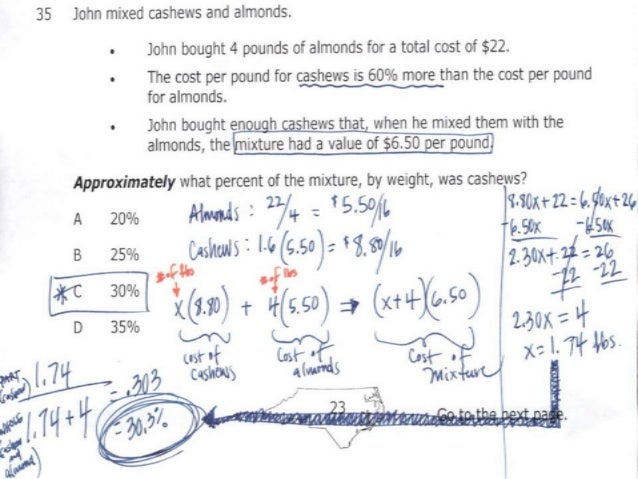 35 John mixed cashews and almonds.
• John bought 4 pounds of almonds for a total cost of $22.
• The cost per pound for cashews is 60% more than the cost per pound
for almonds.
• John bought enough cashews that, when he mixed them with the
almonds, the mixture had a value of $6.50 per pound.
Approximately what percent of the mixture, by weight, was cashews?
A 20%
B 25%
*C 30%
D 35%
Almonds : 22/4 = $5.50/lb
Cashews : 1.6 (5.50) = $8.80/lb
# of lbs # of lbs
x(8.80) + 4(5.50) ⇒ (x+4)(6.50)
Cost of Cashews
Cost of almonds
Cost of Mixture
8.80x + 22 = 6.50x + 26
-6.50x -6.50x
2.30x + 22 = 26
-22 -22
2.30x = 4
x = 1.74 lbs.
PART (cashew) 1.74
WHOLE (cashew and almond) 1.74 + 4
= .303
= 30.3%
23
Go to the next page.